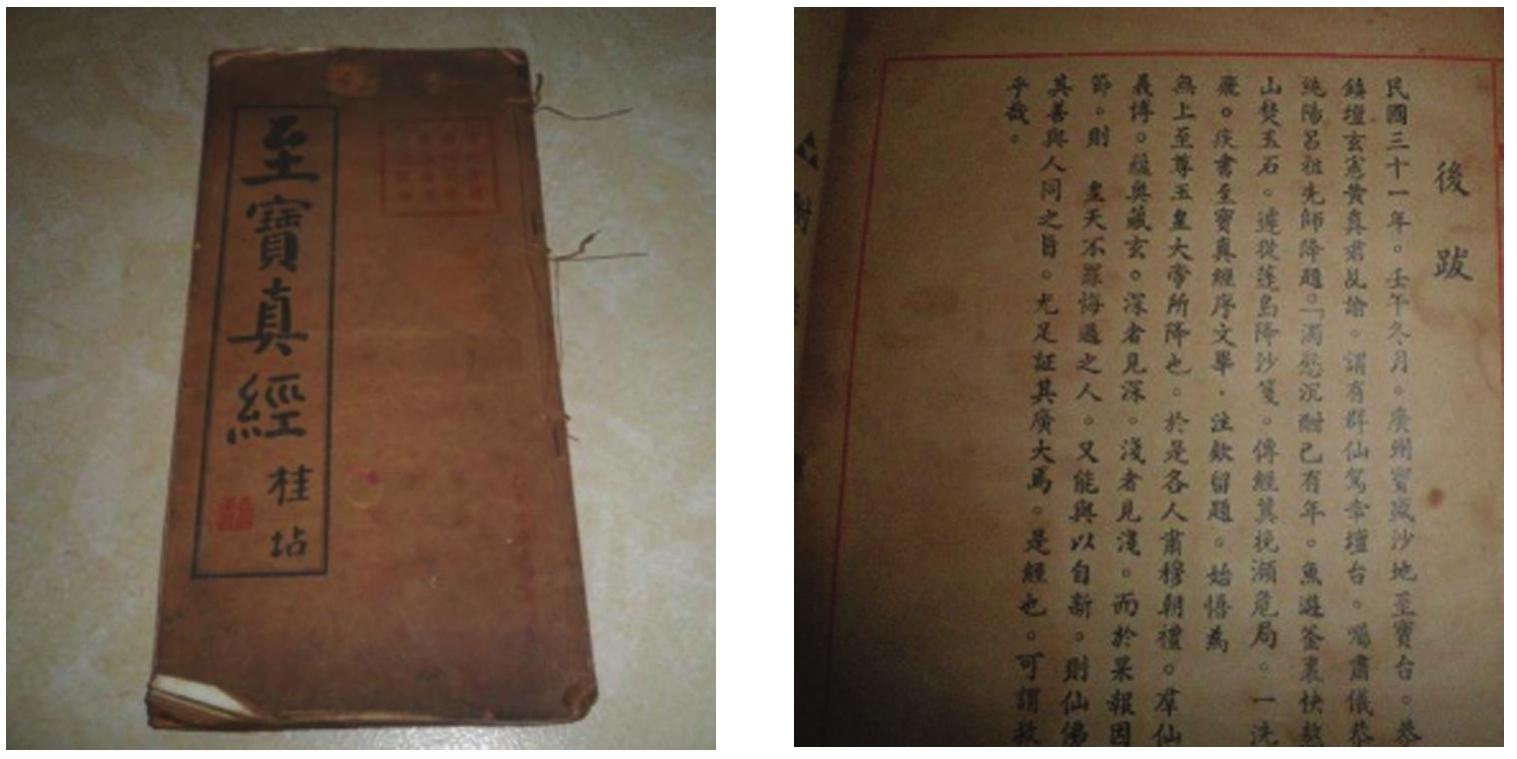 至寶真經
桂坫
後跋
民國三十一年。壬午冬月。廣州寶藏沙地至寶台。恭
鎮壇玄憲黃真君乩諭。謂有群仙駕幸壇台。囑肅儀恭
純陽呂祖先師降題。「濁慾沉酣已有年。魚遊釜裏快熬
山焚玉石。遽從蓬島降沙箋。傳經冀挽瀕危局。一洗
疾書至寶真經序文畢．注欵留題。始悟為
無上至尊玉皇大帝所降也。於是各人肅穆朝禮。羣仙
義博。蘊奧藏玄。深者見深。淺者見淺。而於果報因
節。則 皇天不罪悔過之人。又能與以自新。則仙佛
其善與人同之旨。尤足証其廣大焉。是經也。可謂救
乎哉。